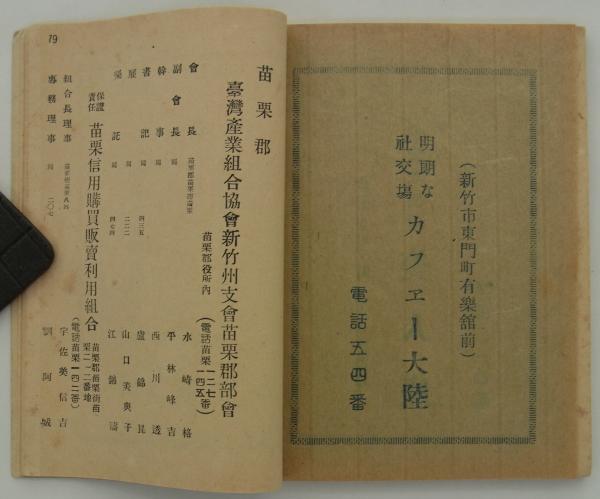 (新竹市東門町有樂舘前)
明朗な
社交場
カフヱー大陸
電話五四番
79
苗栗郡
臺灣產業組合協會新竹州支會苗栗郡部會
苗栗郡役所內
(電話苗栗一二七
一四五番)
會長 水崎格
副會長 平林峰吉
幹事 西川透
書記 四三五 盧錦昆
雇 二二二 山口美與子
囑託 四七四 江錦濤
保證
責任
苗栗信用購買販賣利用組合
苗栗郡苗栗街苗
栗二一二番地
(電話苗栗一四二番)
組合長理事 宇佐美信吉
專務理事 二〇七 劉阿城